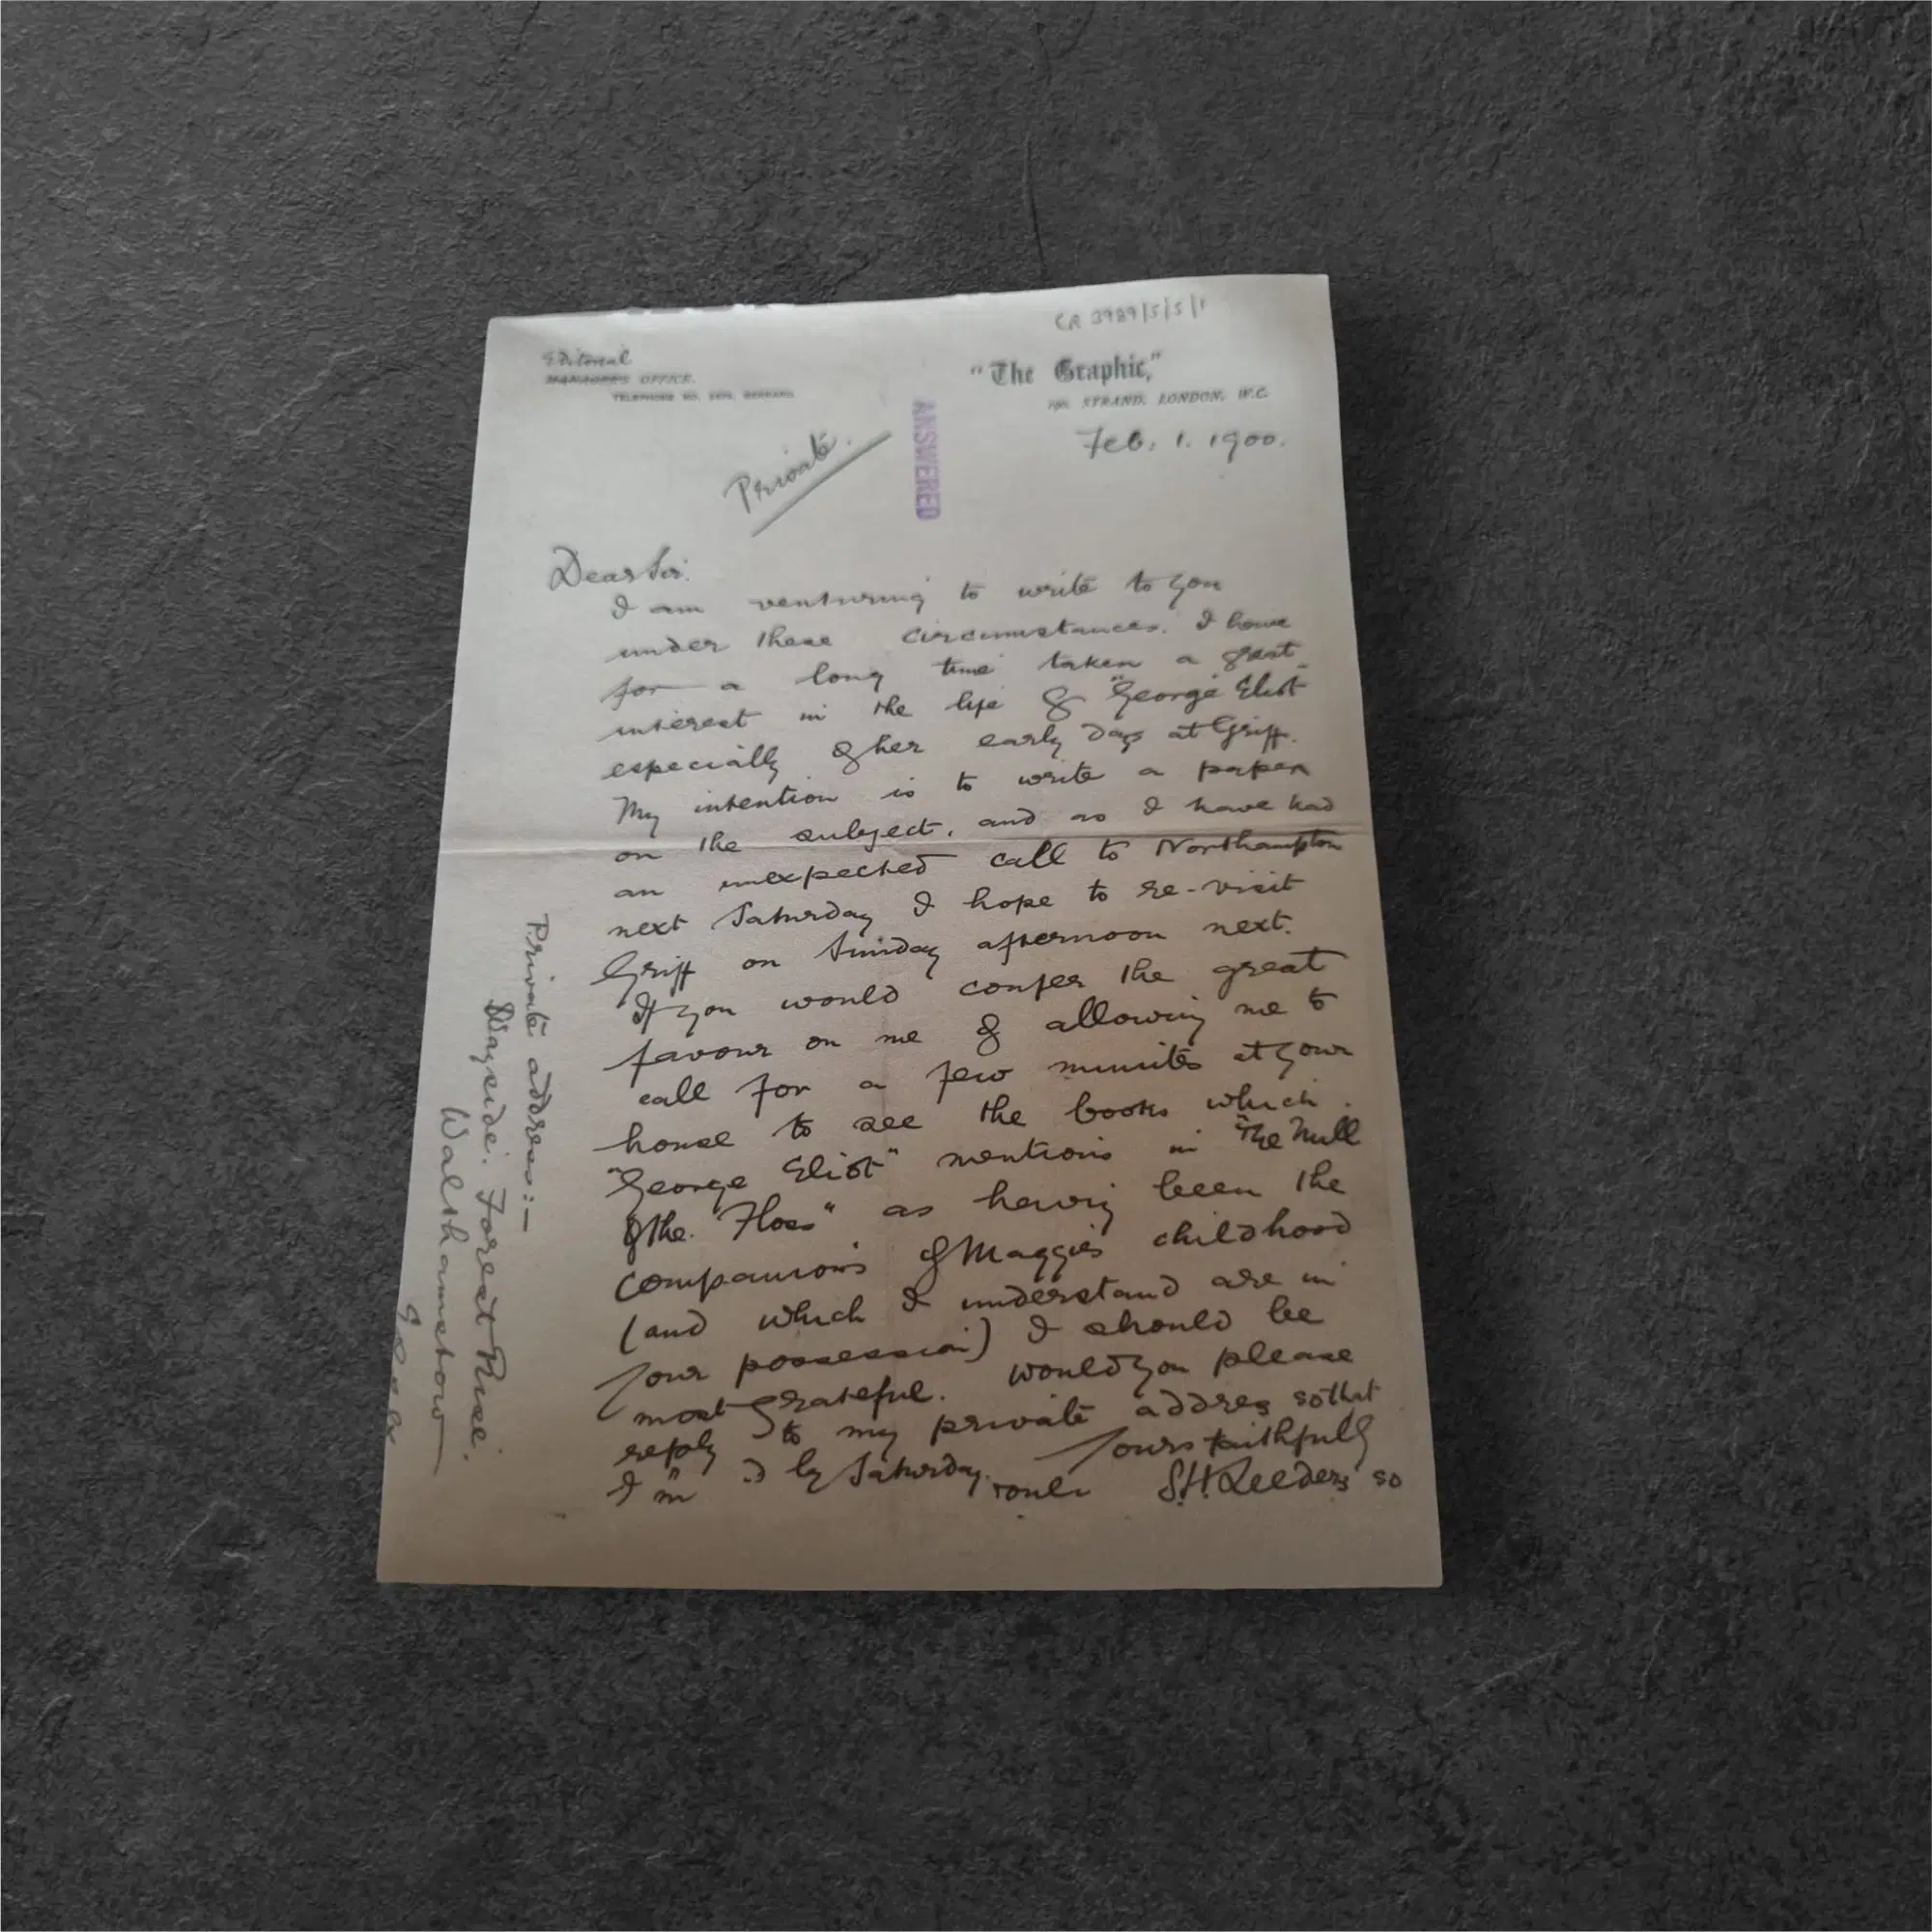 CR 3989/5/5/1
Editorial
MANAGER'S OFFICE.
TELEPHONE NO. GERRARD.
"The Graphic,"
190, STRAND, LONDON, W.C.
Feb. 1. 1900.
Private.
ANSWERED
Dear Sir.
I am venturing to write to you
under these circumstances. I have
for a long time taken a great
interest in the life of "George Eliot
especially of her early days at Griff.
My intention is to write a paper
on the subject, and as I have had
an unexpected call to Northampton
next Saturday I hope to re-visit
Griff on Sunday afternoon next.
If you would confer the great
favour on me of allowing me to
call for a few minutes at your
house to see the books which
"George Eliot" mentions in "The Mill
of the "Floss" as having been the
companions of Maggie's childhood
(and which I understand are in
your possession) I should be
most grateful. Would you please
reply to my private address so that
I by Saturday.
Yours faithfully
S.H. Leeder so
Private address:—
Wayside. Forest Rise.
Walthamstow